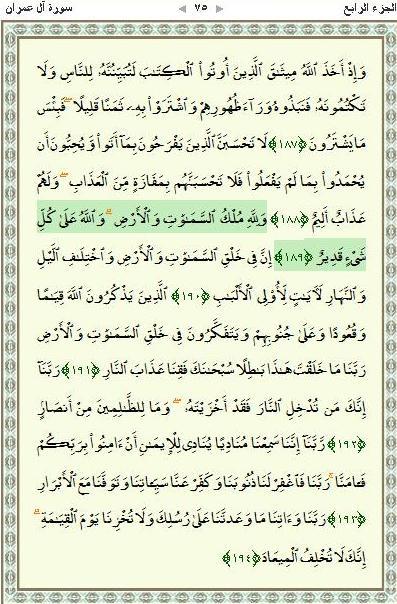 الجزء الرابع ٧٥ سورة آل عمران
وَإِذْ أَخَذَ ٱللَّهُ مِيثَٰقَ ٱلَّذِينَ أُوتُوا۟ ٱلْكِتَٰبَ لَتُبَيِّنُنَّهُۥ لِلنَّاسِ وَلَا
تَكْتُمُونَهُۥ فَنَبَذُوهُ وَرَآءَ ظُهُورِهِمْ وَٱشْتَرَوْا۟ بِهِۦ ثَمَنًا قَلِيلًا ۖ فَبِئْسَ
مَا يَشْتَرُونَ ﴿١٨٧﴾ لَا تَحْسَبَنَّ ٱلَّذِينَ يَفْرَحُونَ بِمَآ أَتَوا۟ وَّيُحِبُّونَ أَن
يُحْمَدُوا۟ بِمَا لَمْ يَفْعَلُوا۟ فَلَا تَحْسَبَنَّهُم بِمَفَازَةٍ مِّنَ ٱلْعَذَابِ ۖ وَلَهُمْ
عَذَابٌ أَلِيمٌ ﴿١٨٨﴾ وَلِلَّهِ مُلْكُ ٱلسَّمَٰوَٰتِ وَٱلْأَرْضِ ۗ وَٱللَّهُ عَلَىٰ كُلِّ
شَىْءٍ قَدِيرٌ ﴿١٨٩﴾ إِنَّ فِى خَلْقِ ٱلسَّمَٰوَٰتِ وَٱلْأَرْضِ وَٱخْتِلَٰفِ ٱلَّيْلِ
وَٱلنَّهَارِ لَءَايَٰتٍ لِّأُو۟لِى ٱلْأَلْبَٰبِ ﴿١٩٠﴾ ٱلَّذِينَ يَذْكُرُونَ ٱللَّهَ قِيَٰمًا
وَقُعُودًا وَعَلَىٰ جُنُوبِهِمْ وَيَتَفَكَّرُونَ فِى خَلْقِ ٱلسَّمَٰوَٰتِ وَٱلْأَرْضِ
رَبَّنَا مَا خَلَقْتَ هَٰذَا بَٰطِلًا سُبْحَٰنَكَ فَقِنَا عَذَابَ ٱلنَّارِ ﴿١٩١﴾ رَبَّنَآ
إِنَّكَ مَن تُدْخِلِ ٱلنَّارَ فَقَدْ أَخْزَيْتَهُۥ ۖ وَمَا لِلظَّٰلِمِينَ مِنْ أَنصَارٍ
﴿١٩٢﴾ رَّبَّنَآ إِنَّنَا سَمِعْنَا مُنَادِيًا يُنَادِى لِلْإِيمَٰنِ أَنْ ءَامِنُوا۟ بِرَبِّكُمْ
فَـَٔامَنَّا ۚ رَبَّنَا فَٱغْفِرْ لَنَا ذُنُوبَنَا وَكَفِّرْ عَنَّا سَيِّـَٔاتِنَا وَتَوَفَّنَا مَعَ ٱلْأَبْرَارِ
﴿١٩٣﴾ رَبَّنَا وَءَاتِنَا مَا وَعَدتَّنَا عَلَىٰ رُسُلِكَ وَلَا تُخْزِنَا يَوْمَ ٱلْقِيَٰمَةِ ۗ
إِنَّكَ لَا تُخْلِفُ ٱلْمِيعَادَ ﴿١٩٤﴾